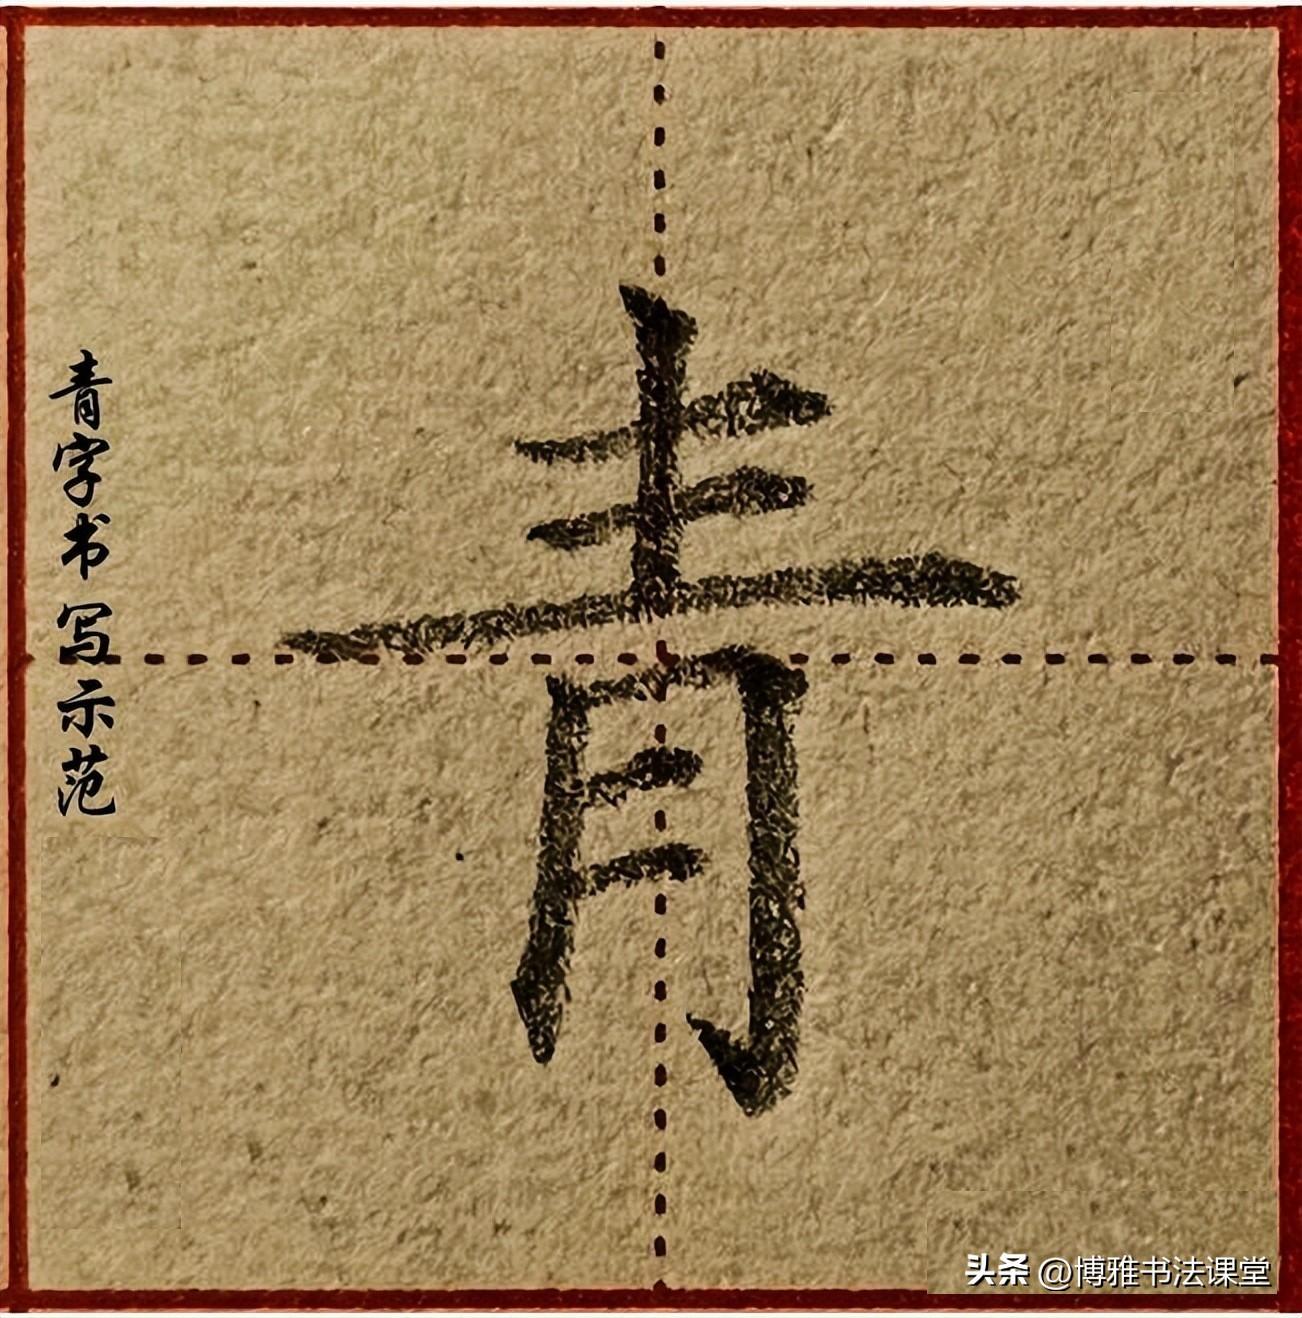 青字书写示范
青
头条 @博雅书法课堂